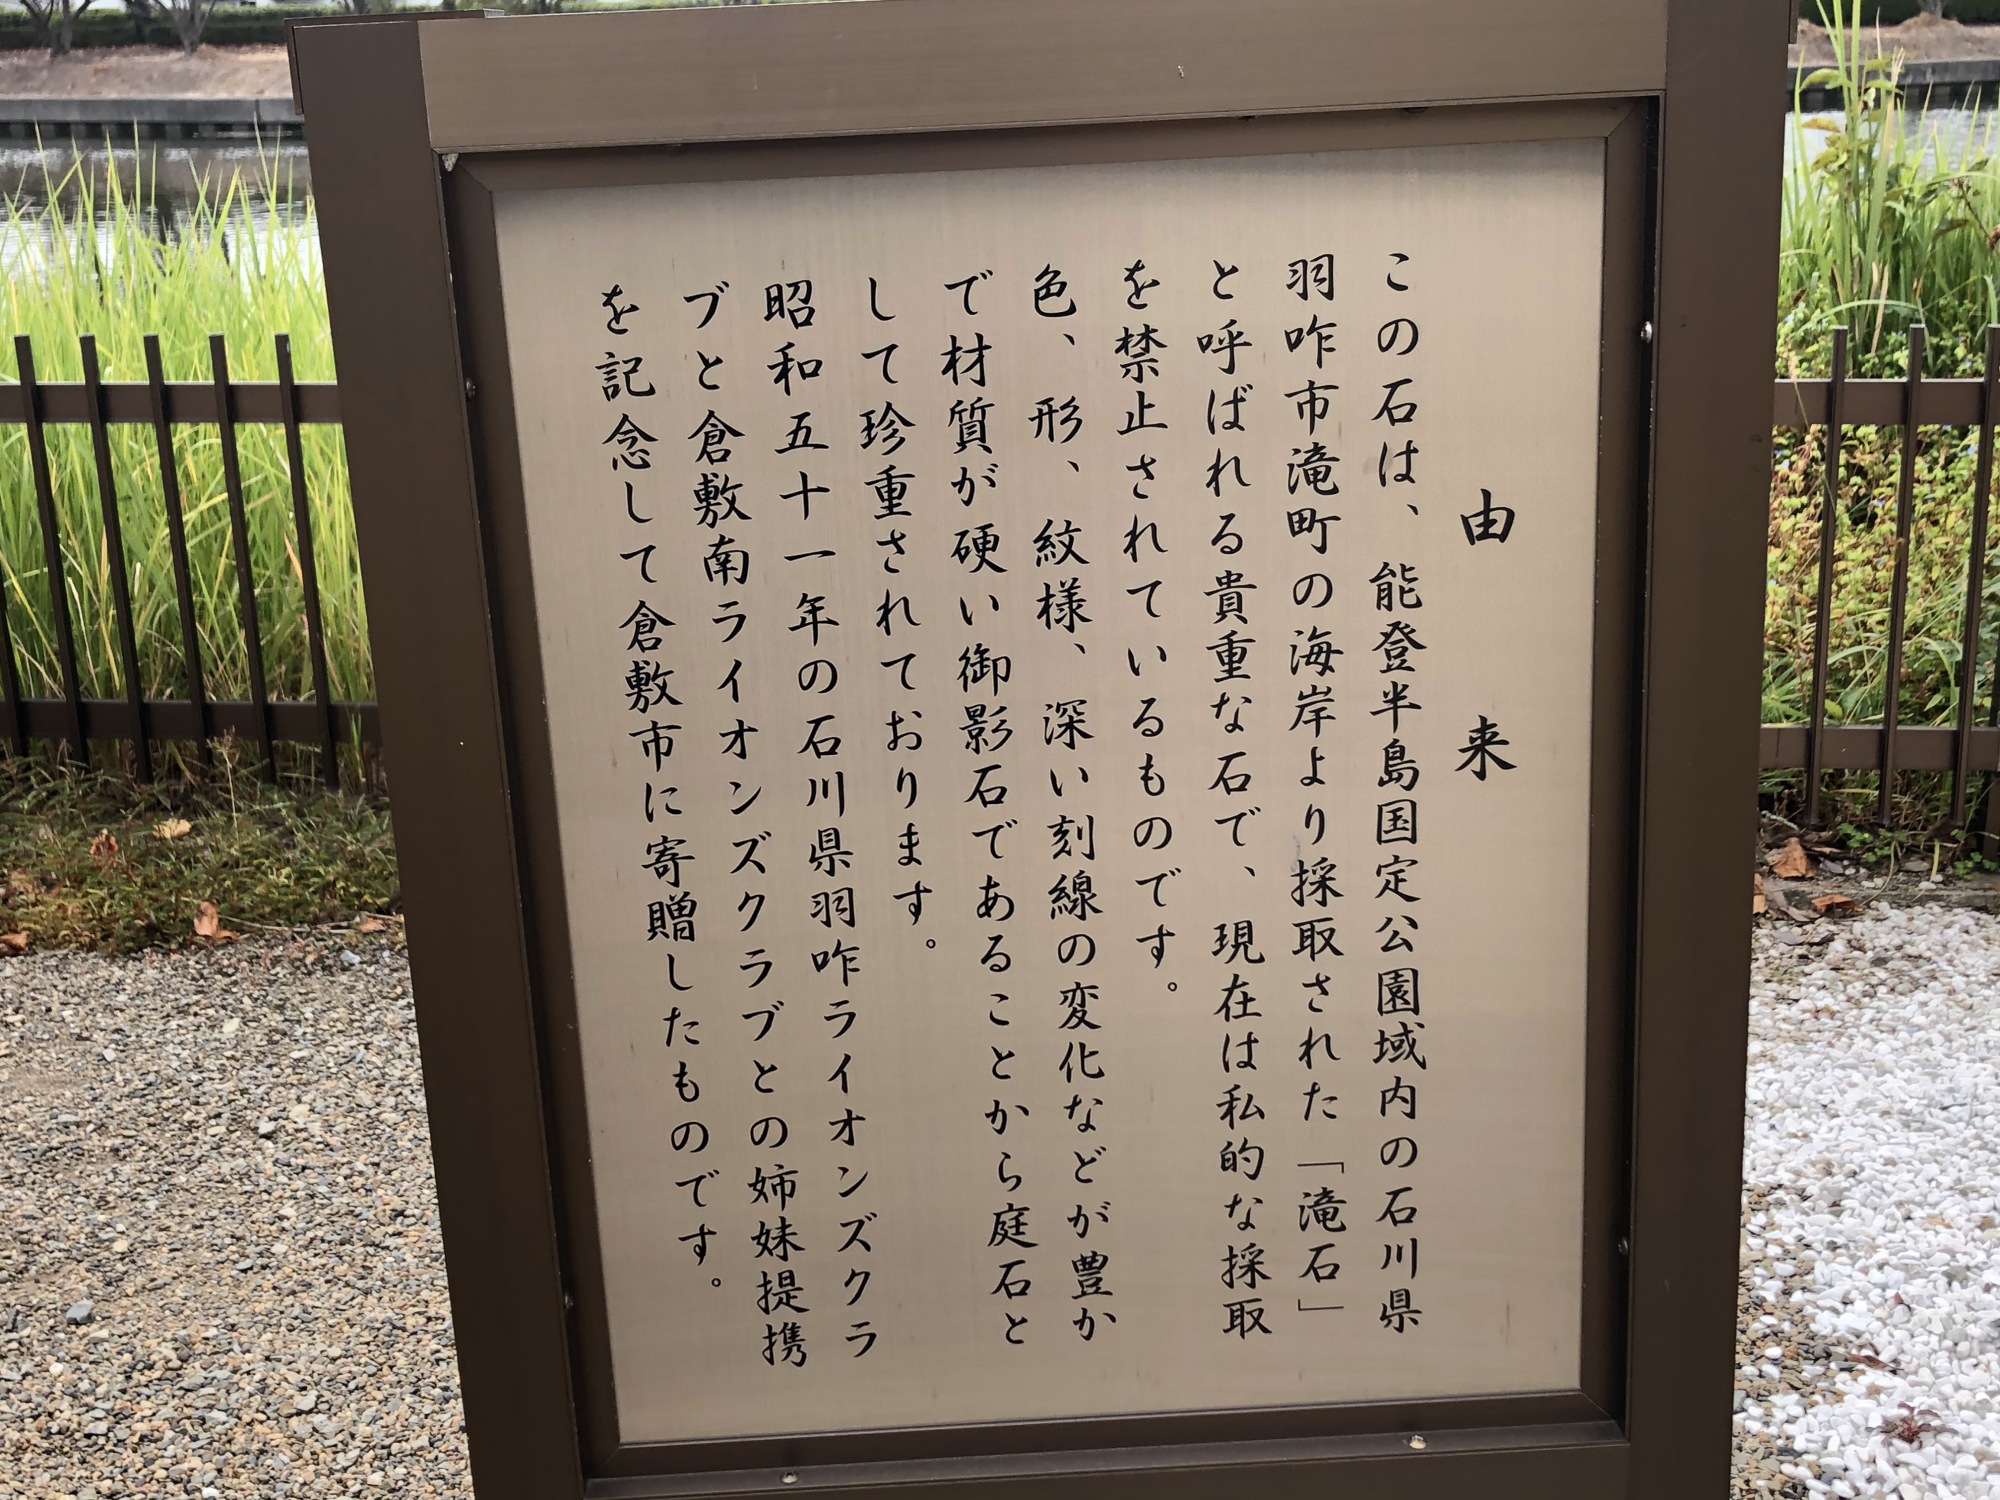 由来
この石は、能登半島国定公園域内の石川県
羽咋市滝町の海岸より採取された「滝石」
と呼ばれる貴重な石で、現在は私的な採取
を禁止されているものです。
色、形、紋様、深い刻線の変化などが豊か
で材質が硬い御影石であることから庭石と
して珍重されております。
昭和五十一年の石川県羽咋ライオンズクラ
ブと倉敷南ライオンズクラブとの姉妹提携
を記念して倉敷市に寄贈したものです。